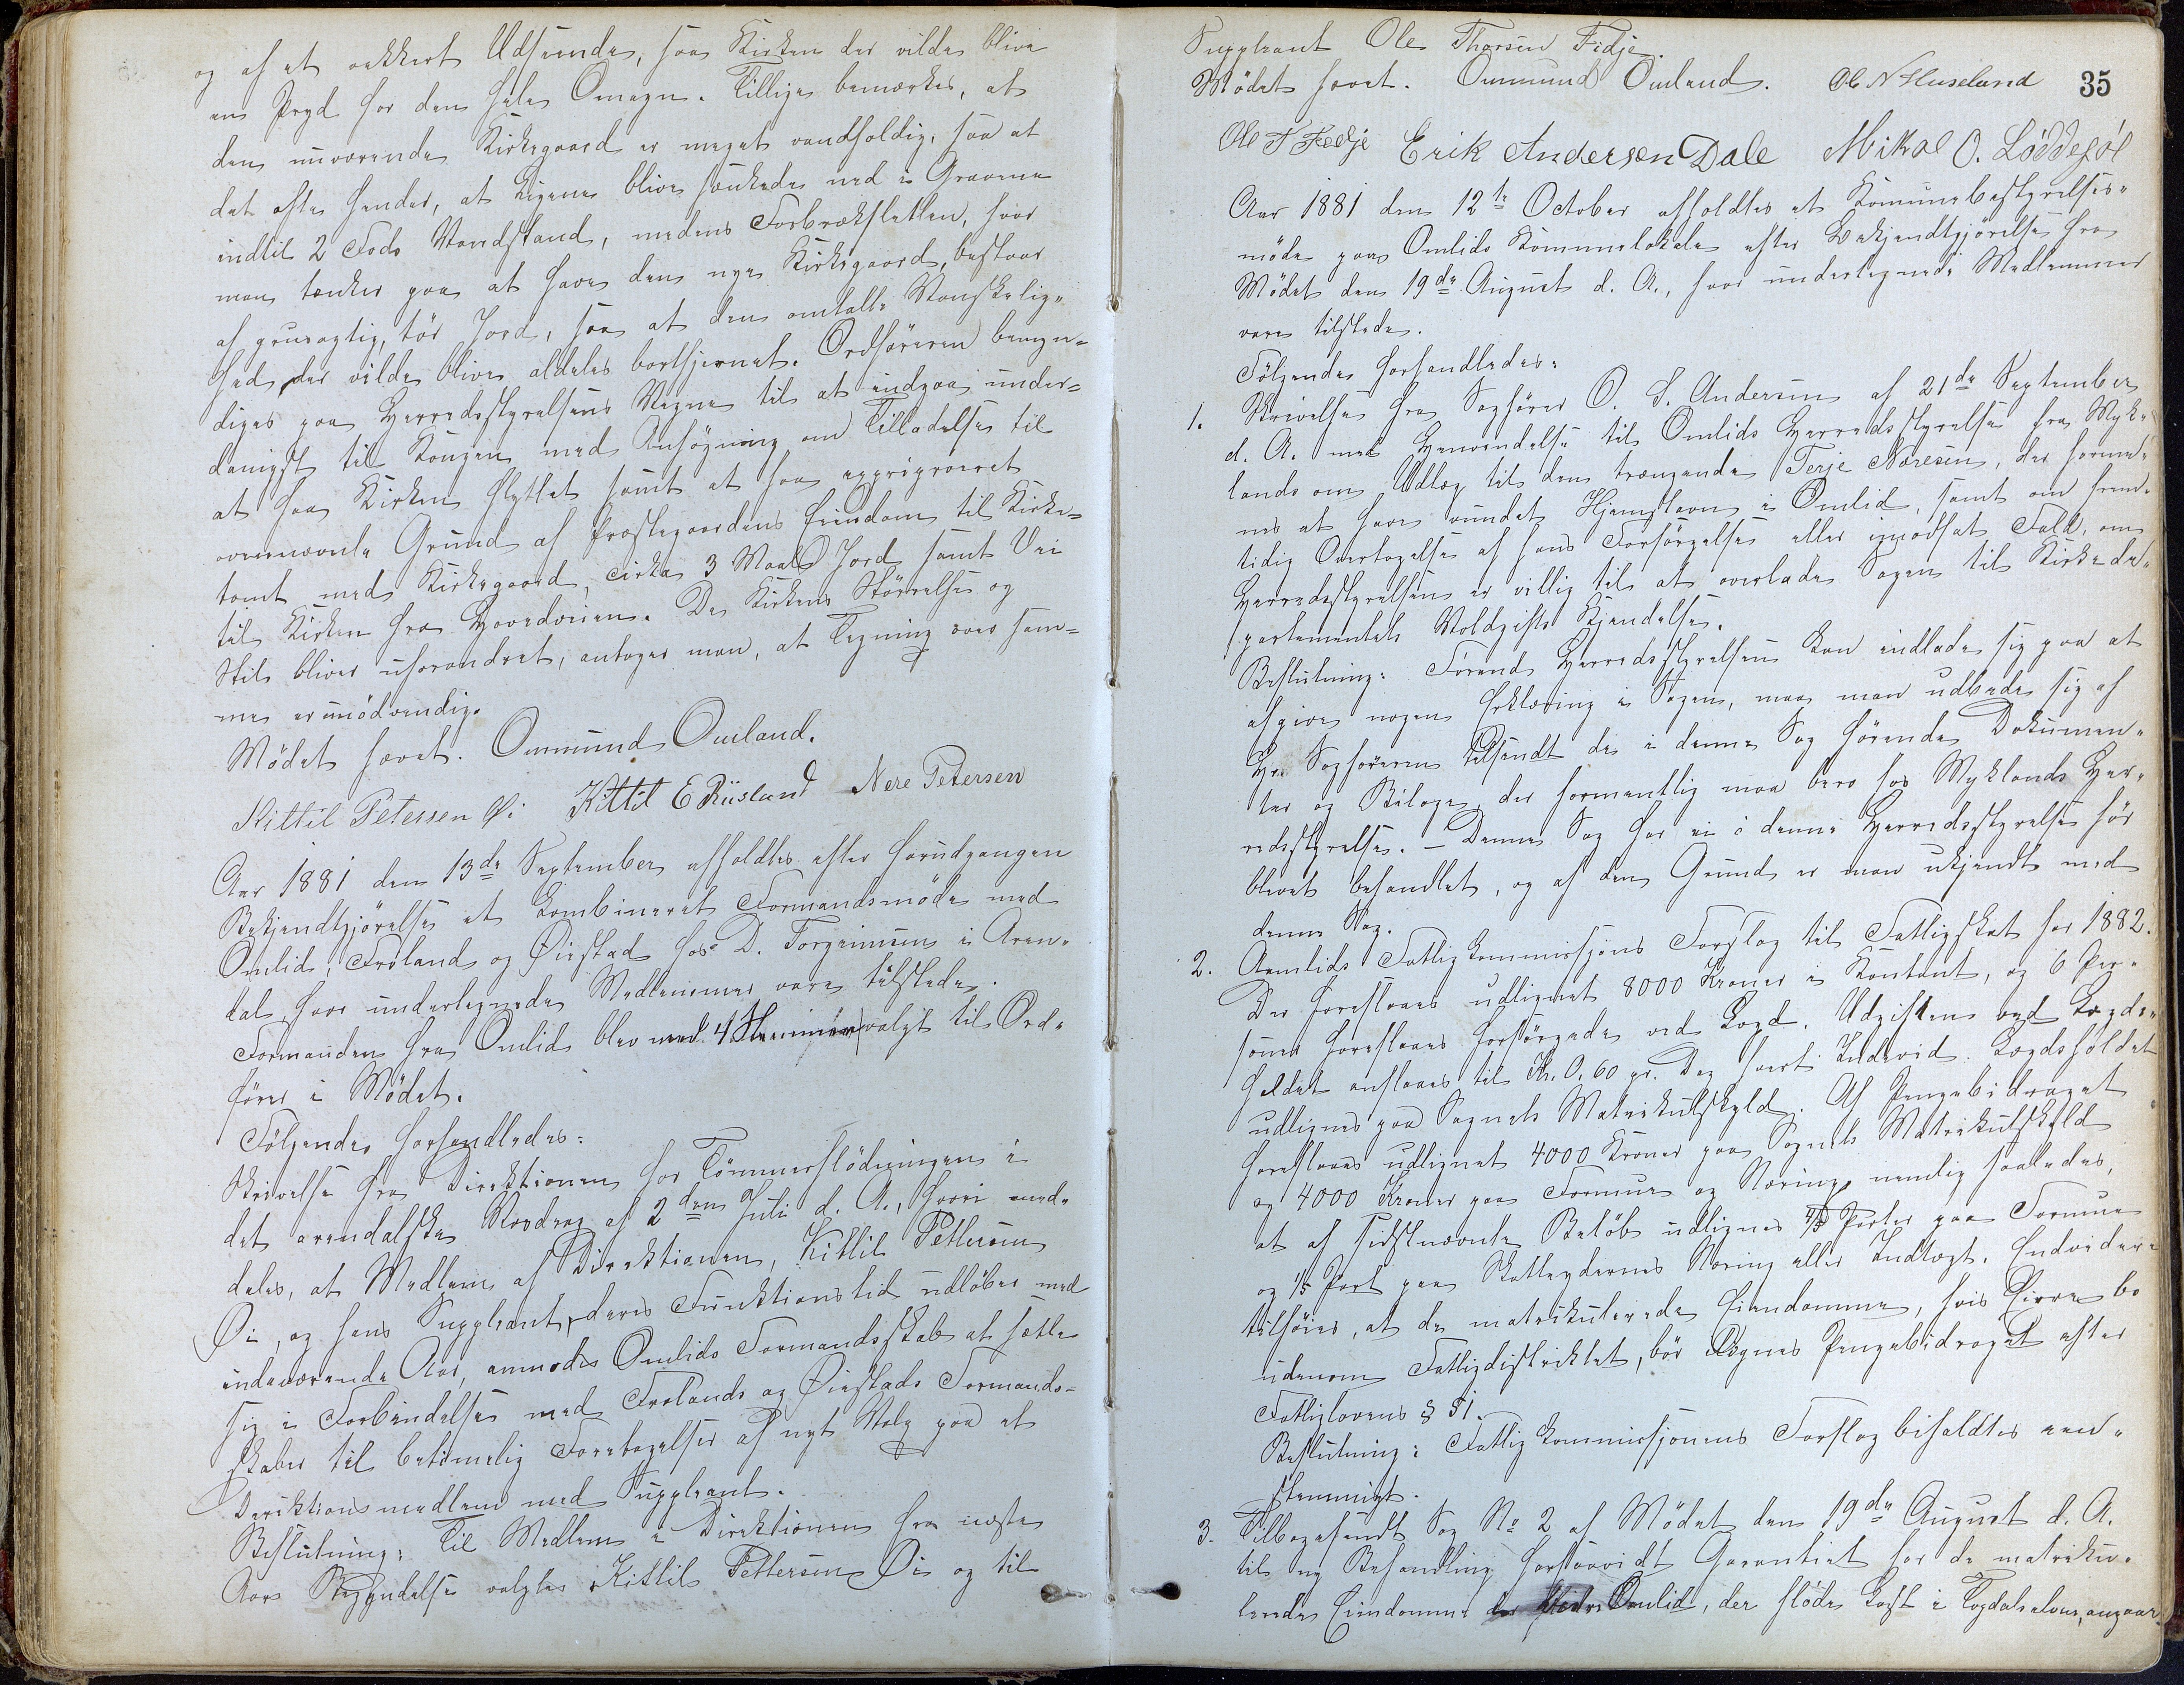 og af et vakkert Udseende, saa Kirken der vilde blive
en Pryd for den hele Omegn. Tillige bemærkes, at
den nuværende Kirkegaard er meget vandholdig, saa at
det ofte hender, at Ligene blive sænkede ned i Gravene
indtil 2 Fods Vandstand, medens Forbrekksletten, hvor
man tænker paa at have den nye Kirkegaard, bestaar
af grusagtig, tør Jord, saa at den omtalte Vanskelig=
hed der vilde blive aldeles bortfjernet. Ordføreren bemyn=
diges paa Herredsstyrelsens Vegne til at indgaa under=
danigst til Kongen med Ansøgning om Tilladelse til
at faa Kirken flyttet samt at faa expriproeret
ovennævnte Grund af Præstegaardens Eiendom til Kirke=
tomt med Kirkegaard, cirka 3 Maal Jord samt Vei
til Kirken fra Hovedveien. Da Kirkens Størrelse og
Stil bliver uforandret, antager man, at Tegning over sam=
me er unødvendig.
Mødet hævet. Ommund Omland.
Kittil Petersen Øi Kittil E Risland Nere Petersen
Aar 1881 den 13de September afholdtes efter forudgangen
Bekjendtgjørelse et kombineret Formandsmøde med
Omlid, Froland og Øiestad hos D. Torgrimsen i Aren=
dal, hvor undertegnede Medlemmer vare tilstede.
Formanden fra Omlid blev med 4 Stemmer valgt til Ord=
fører i Mødet.
Følgende forhandledes:
Skrivelse fra Direktionen for Tømmerflødningen i
det arendalske Vasdrag af 2den Juli d. A., hvori med=
deles, at Medlem af Direktionen, Kittil Pettersen
Øi, og hans Suppleant, deres Funktionstid udløber med
indeværende Aar, anmodes Omlids Formandsskab at sætte
sig i Forbindelse med Frolands og Øiestads Formands=
skaber til betimelig Foretagelse af nyt Valg paa et
Direktionsmedlem med Suppleant.
Beslutning: Til Medlem i Direktionen fra næste
Aars Begyndelse valgtes Kittil Pettersen Øi og til
Suppleant Ole Thorsen Fidje.
Mødet hævet. Ommund Omland. Ole N Huseland 35
Ole T Fedje Erik Andersen Dale Mikal O. Løddesøl
Aar 1881 den 12te October afholdtes et Komunebestyrelses=
møde paa Omlids Kommunelokale efter Bekjendtgjørelse fra
Mødet den 19de August d. A., hvor undertegnede Medlemmer
vare tilstede.
Følgende forhandledes:
1. Skrivelse fra Sagfører O. S. Andersen af 21de September
d. A. med Henvendelse til Omlids Herredsstyrelse fra Myk=
lands om Udlæg til den trængende Terje Næresen, der forme=
nes at have vundet Hjemstavn i Omlid, samt om frem=
tidig Overtagelse af hans Forsørgelse eller i modsat Fald, om
Herredsstyrelsen er villig til at overlade Sagen til Kirkede=
partementets Voldgifts Kjendelse.
Beslutning: Førend Herredsstyrelsen kan indlade sig paa at
afgive nogen Erklæring i Sagen, maa man udbede sig af
Hr. Sagføreren tilsendt de i denne Sag hørende Dokumen=
ter og Bilage, der formentlig maa bero hos Myklands Her=
redsstyrelse. – Denne Sag har ei i denne Herredsstyrelse før
blevet behandlet, og af den Grund er man ukjendt med
denne Sag.
2. Aamlids Fattigkommissjons Forslag til Fattigskat for 1882.
Der foreslaaes udlignet 8000 Kroner i Kontant, og 6 Per=
soner foreslaaes forsørgede ved Legd. Udgiften ved Legds=
holdet anslaaes til Kr. 0,60 pr. Dag hvert Individ. Legdsholdet
udlignes paa Sognets Matrikulskyld. Af Pengebidraget
foreslaaes udlignet 4000 Kroner paa Sognets Matrikulskyld
og 4000 Kroner paa Formue og Næring, nemlig saaledes,
at af sidstnævnte Beløb udlignes 4/5 Parter paa Formue
og 1/5 Part paa Skatteydernes Næring eller Indtægt. Endvidere
tilføies, at de matrikulerede Eiendomme, hvis Eiere bo
udenom Fattigdistriktet, bør ilignes Pengebidraget efter
Fattiglovens § 51.
Beslutning: Fattigkommissjonens Forslag bifaldtes een=
stemmigt.
3. Tilbagesendt Sag № 2 af Mødet den 19de August d. A.
til ny Behandling forsaavidt Garantiet for de matriku=
lerede Eiendomme Omlid, der fløde Last i Togdalselven, angaar